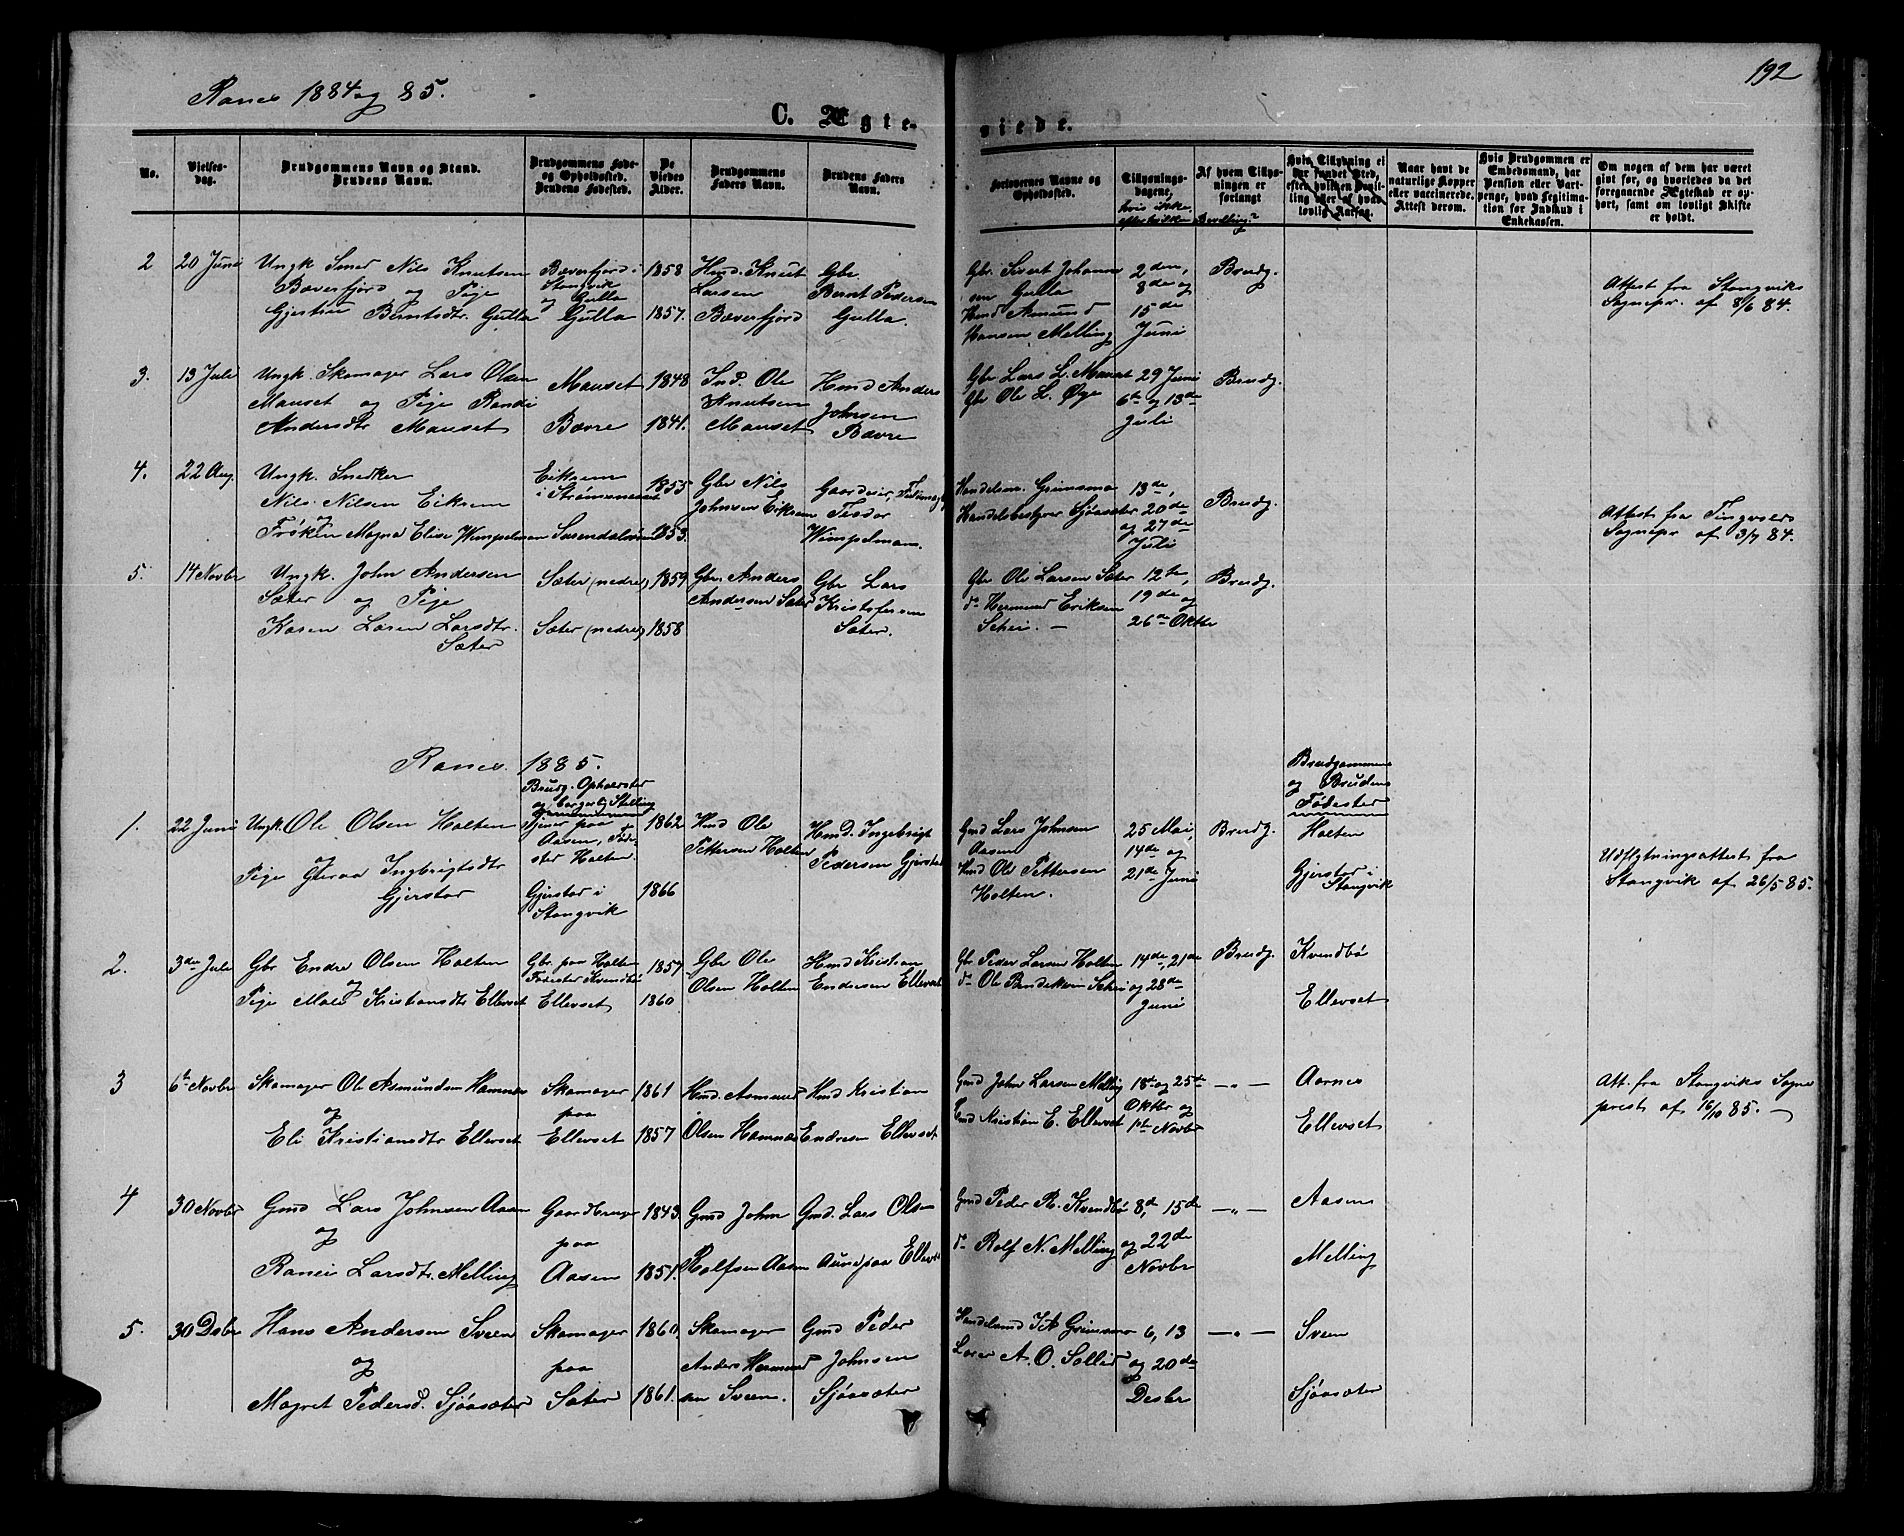 192
Ranes 1884 og 85.
C. Ægte-
viede.
No.
Vielses-
dag.
Brudgommens Navn og Stand.
Brudens Navn.
Brudgommens Føde-
og Opholdssted.
Brudens Fødested.
De
Viedes
Alder.
Brudgommens
Faders Navn.
Brudens Faders
Navn.
Forlovernes Navne og
Opholdssted.
Tillysnings-
dagene,
hvis ikke
efter hvilken Bevilling?
Af hvem Tillys-
ningen er
forlangt
Hvis Tillysning ei
har fundet Sted,
efter hvilken Bevil-
ling eller af hvad
lovlig Aarsag.
Naar havt de
naturlige Kopper
eller vaccinerede.
Attest derom.
Hvis Brudgommen er
Embedsmand, har
Pension eller Vart-
penge, hvad Legitima-
tion for Indskud i
Enkekassen.
Om nogen af dem har været
gift før, og hvorledes da det
foregaaende Ægteskab er op-
hørt, samt om lovligt Skifte
er holdt.
2
20 Juni
Ungk Smed Nils Knutsen
Bæverfjord og Pige
Gjertine Berntsdtr. Gulla
Bæverfjord i
Stangvik
og Gulla
Gulla
1858
1857.
Hmd. Knut
Larsen
Bæverfjord
Gbr
Bernt Pedersen
Gulla.
Gbr. Sivert Johann
sen Gulla
Hmd Amund
Hansen Melling
2den,
8de og
15de
Juni
Brudg.
Attest fra Stangviks
Sognepr. af 8/6 84.
3.
13 Juli
Ungk. Skomager Lars Olsen
Mauset og Pige Randi
Andersdtr Mauset
Mauset
Bævre
1848
1841.
Ind. Ole
Knutsen
Mauset
Hmd Anders
Johnsen
Bævre
Gbr Lars L. Mauset
Gbr Ole L. Øye
29 Juni
6te og 13de
Juli
Brudg.
4.
22 Aug.
Ungk. Snedker
Nils Nilsen Eiksem
og
Frøken Magna Elise Wimpelman
Eiksem
i Strømsneset
Surendalsøren
1855
1853.
Gbr Nils
Johnsen Eiksem
Gaardeier,
Teodor
Wimpelman.
Handelsm. Grimsmo
Handelsbestyrer Sjøasæter
13de,
20de
og 27de
Juli
Brudg.
Attest fra Tingvolds
Sognepr af 3/7 84.
5.
14 Novbr
Ungk. John Andersen
Sæter og Pige
Karen Larsdtr.
Sæter
Sæter (nedre)
Sæter (nedre)
1859
1858
Gbr. Anders
Andersen Sæter
Gbr Lars
Kristofersen
Sæter.
Gbr Ole Larsen Sæter
do Hermund Eriksen
Schei. —
12te,
19de og
26de Oktbr
Brudg.
Ranes 1885.
Brudg. Opholdssted
og borgerlig Stilling
Brudgommens
og Brudens
Fødested
1.
22 Juni
Ungk. Ole Olsen Holten
og
Pige Guroa Ingbrigtsdtr
Gjerstad
Tjener paa
Aasen, Føde-
sted Holten.
Gjerstad i
Stangvik
1862
1866
Hmd Ole
Pettersen Holten
Hmd. Ingebrigt
Pedersen Gjerstad
Gmd Lars Johnsen
Aasen
Hmd Ole Pettersen
Holten.
25 Mai,
14de og
21de Juni
Brudg.
Holten
Gjerstad i
Stangvik
Udflytningsattest fra
Stangvik af 26/5 85.
2.
3die Juli
Gbr Endre Olsen Holten
og
Pige Mali Kristiansdtr Ellevset
Gbr. paa Holten
Fødested Kvendbø
Ellevset
1857
1860
Gbr Ole
Olsen Holten
Hmd Kristian
Endresen Ellevset
Gbr. Peder Larsen Holten
do Ole Bendiksen Schei
14de, 21de
og 28de
Juni
Brudg.
Kvendbø
Ellevset
3
6te Novbr
Skomager Ole Asmundsen Hamnes
og
Eli Kristiansdtr Ellevset
Skomager
paa
Ellevset
1861
1857
Hmd. Asmund
Olsen Hamnes
Hmd Kristian
Endresen Ellevset
Gmd John Larsen Melling
Hmd Kristian E. Ellevset
18de og 25de
Oktbr og
1ste Novbr
— " —
Aarnes
Ellevset
Att. fra Stangviks Sogne
prest af 16/10 85. —
4
30 Novbr
Gmd Lars Johnsen Aasen
og
Ranei Larsdtr. Melling
Gaardbruger
paa
Aasen
1843.
1851.
Gmd John
Rolfsen Aasen
Gmd. Lars Olsen
Aune paa Ellevset
Gmd Peder R. Kvendbø
do Rolf N. Melling
8de, 15de
og 22de
Novbr
— " —
Aasen
Melling
5.
30 Dsbr
Hans Andersen Sveen
og
Magret Pedersd. Sjøasæter
Skomager
paa
Sæter
1860.
1861.
Skomager
Anders Hermund
sen Sveen.
Gmd Peder
Johnsen
Sjøasæter
Handelsmd Grimsmo
Lærer A. O. Sollid
6, 13
og 20de
Desbr
— " —
Sveen
Sjøasæter